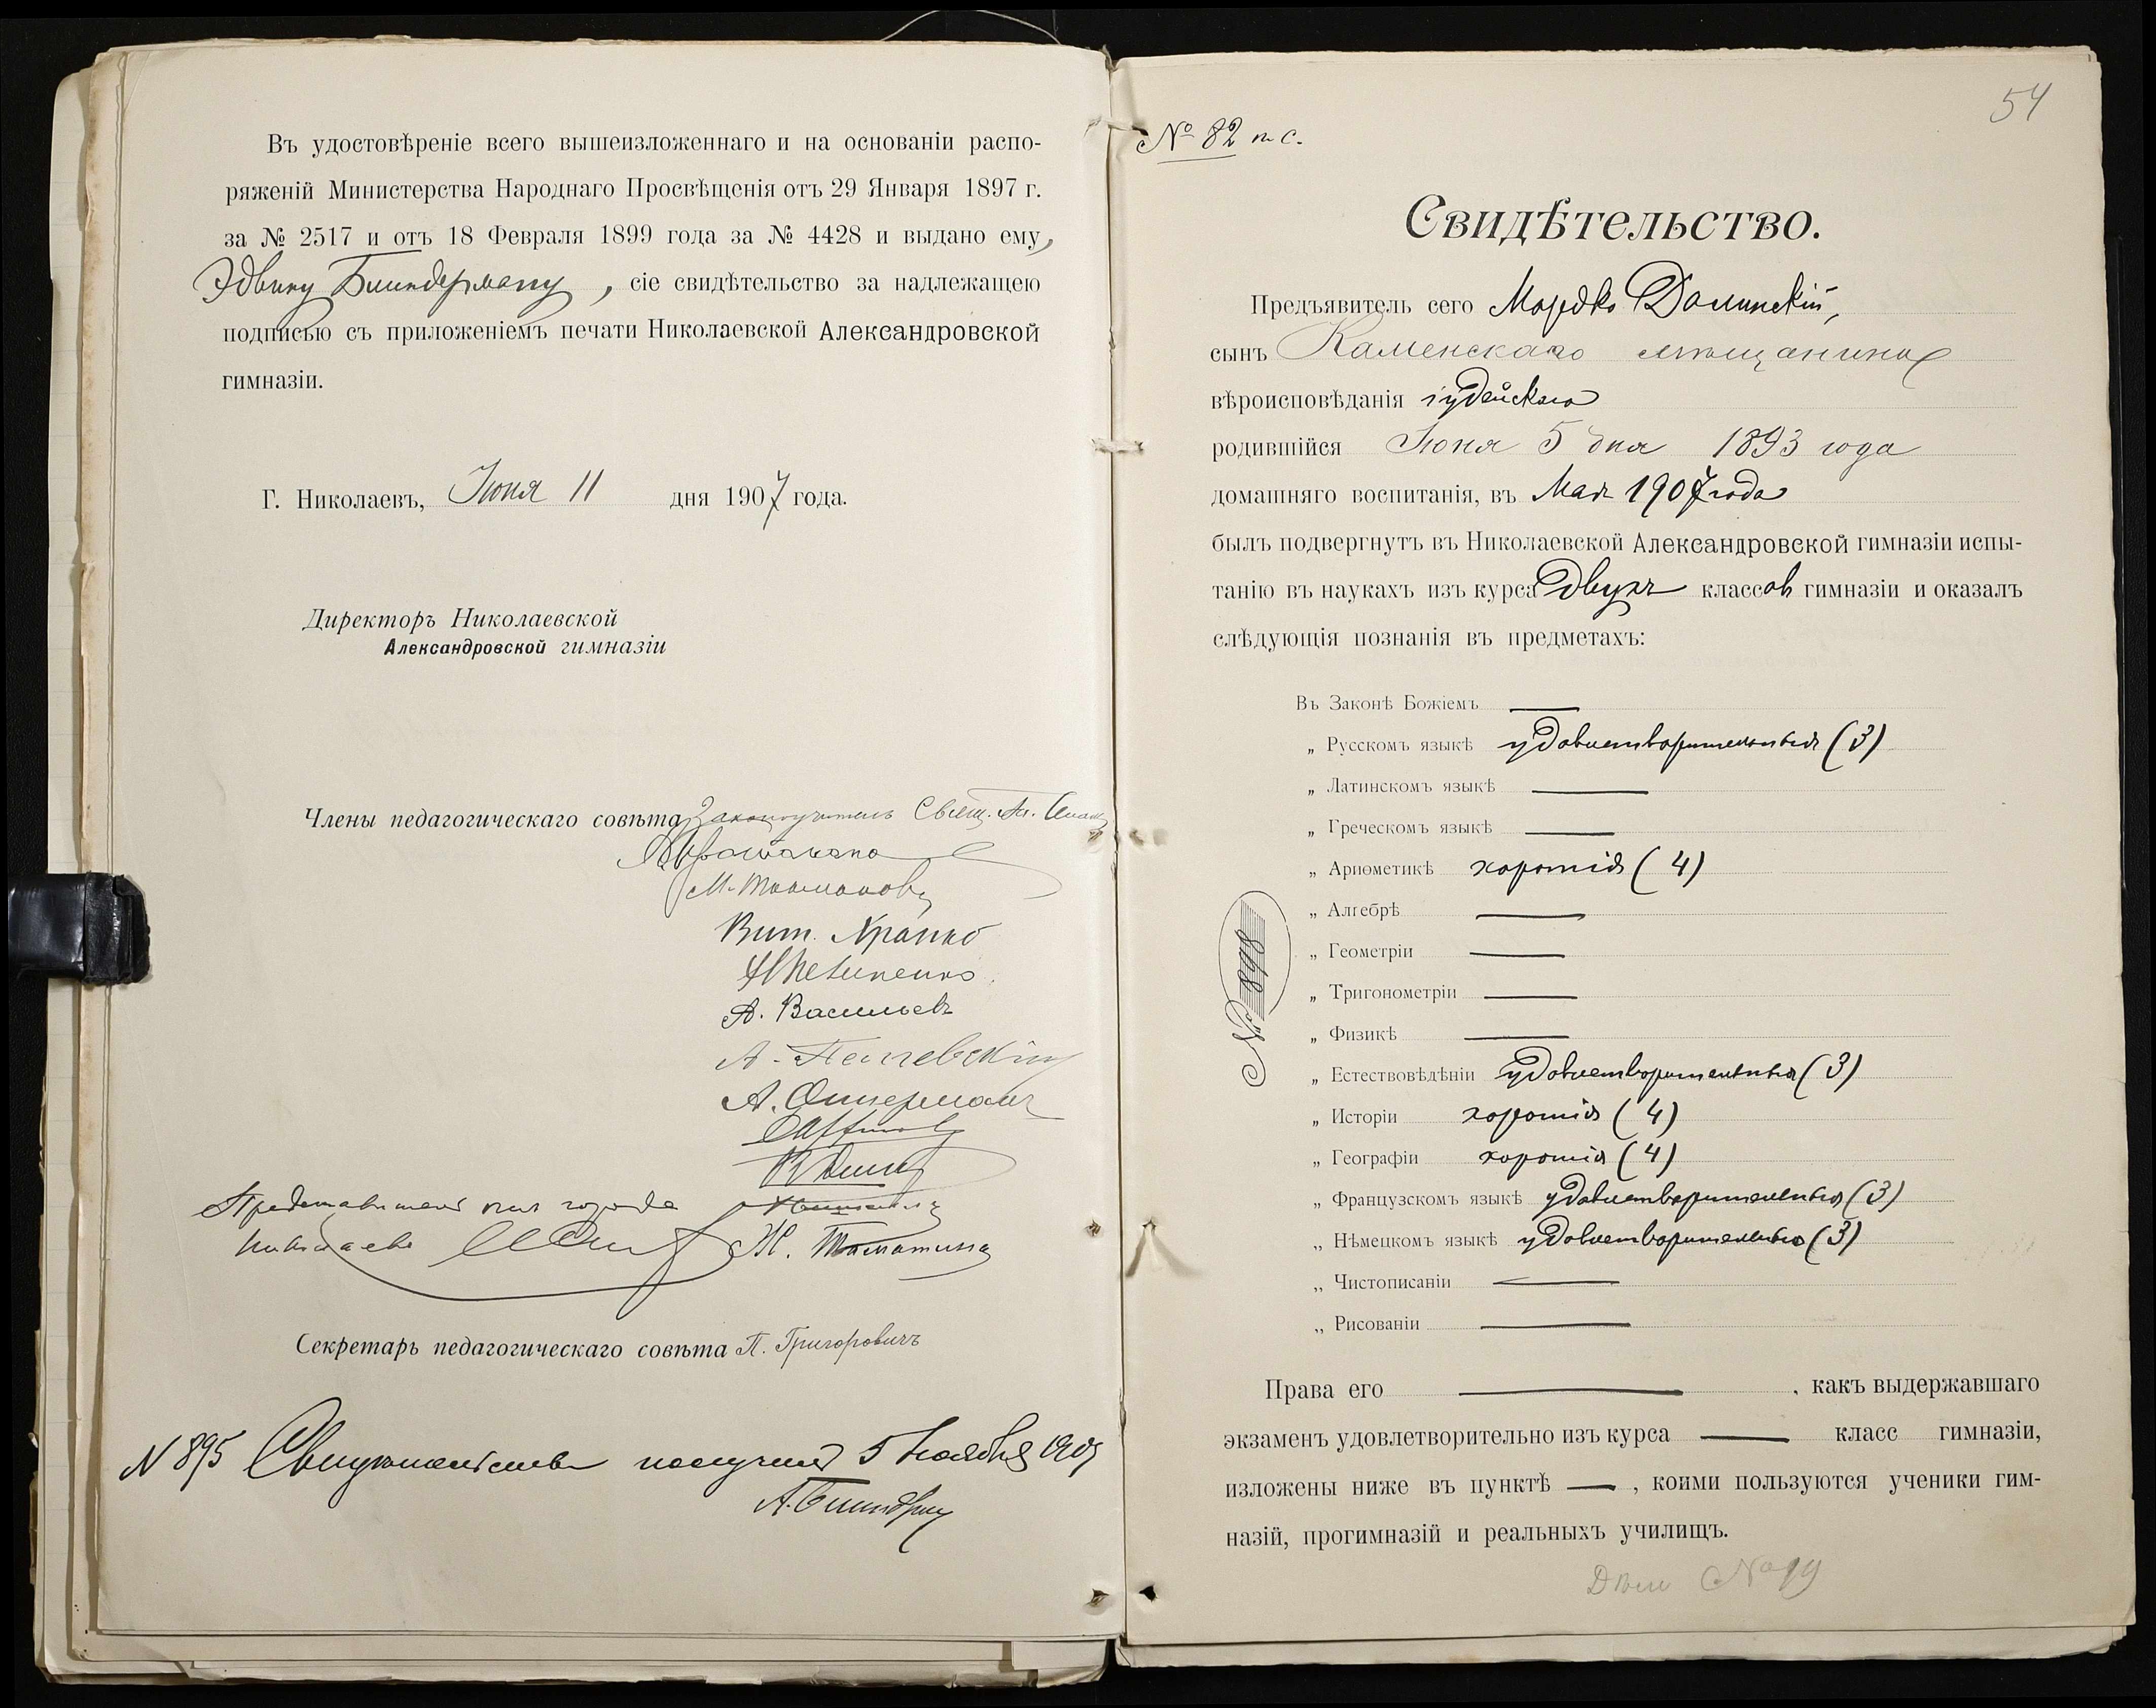 Въ удостовѣреніе всего вышеизложеннаго и на основаніи распо-
ряженій Министерства Народнаго Просвѣщенія отъ 29 Января 1897 г.
за № 2517 и отъ 18 Февраля 1899 года за № 4428 и выдано ему,
Эдвину Биндерману, сіе свидѣтельство за надлежащею
подписью съ приложеніемъ печати Николаевской Александровской
гимназіи.
Г. Николаевъ, Іюня 11 дня 1907 года.
Директоръ Николаевской
Александровской гимназіи
Члены педагогическаго совѣта Законоучитель Свящ.
Вит.
А. Васильевъ
Представитель города
Николаева
Секретарь педагогическаго совѣта П. Григоровичъ
N 895 Свидѣтельство получилъ 5 Ноября 1907
54
№ 82 т с.
Свидѣтельство.
Предъявитель сего Мордко Долинскій,
сынъ Каменскаго мѣщанина
вѣроисповѣданія іудейскаго
родившійся Іюня 5 дня 1893 года
домашняго воспитанія, въ Маѣ 1907 года
былъ подвергнутъ въ Николаевской Александровской гимназіи испы-
танію въ наукахъ изъ курса двухъ классовъ гимназіи и оказалъ
слѣдующія познанія въ предметахъ:
Въ Законѣ Божіемъ —
„ Русскомъ языкѣ удовлетворительныя (3)
„ Латинскомъ языкѣ —
„ Греческомъ языкѣ —
„ Ариѳметикѣ хорошія (4)
„ Алгебрѣ —
„ Геометріи —
„ Тригонометріи —
„ Физикѣ —
„ Естествовѣдѣніи удовлетворительныя (3)
„ Исторіи хорошія (4)
„ Географіи хорошія (4)
„ Французскомъ языкѣ удовлетворительныя (3)
„ Нѣмецкомъ языкѣ удовлетворительныя (3)
„ Чистописаніи —
„ Рисованіи —
№ 898
Права его — , какъ выдержавшаго
экзаменъ удовлетворительно изъ курса — класс гимназіи,
изложены ниже въ пунктѣ — , коими пользуются ученики гим-
назій, прогимназій и реальныхъ училищъ.